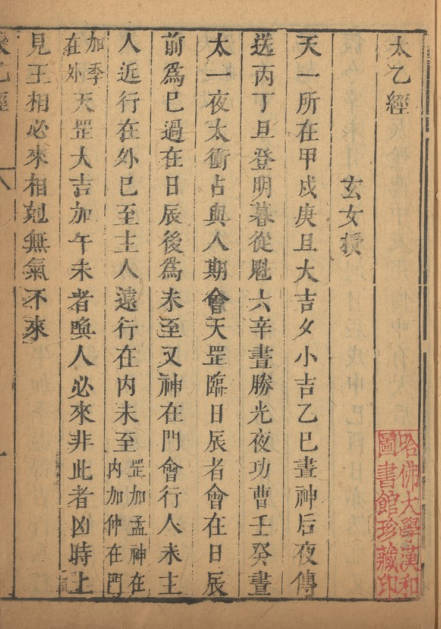 太乙經
玄女授
天一所在甲戊庚旦大吉夕小吉乙巳晝神后夜傳
送丙丁旦登明暮從魁六辛晝勝光夜功曹壬癸晝
太一夜太衝占與人期會天罡臨日辰者會在日辰
前爲已過在日辰後爲未至又神在門會行人未主
人近行在外已至主人遠行在内未至罡加孟神在
内加仲在門
加季
在外天罡大吉加午未者喚人必來非此者凶時上
見王相必來相剋無氣不來
太乙經
哈佛大學漢和
圖書館珍藏印